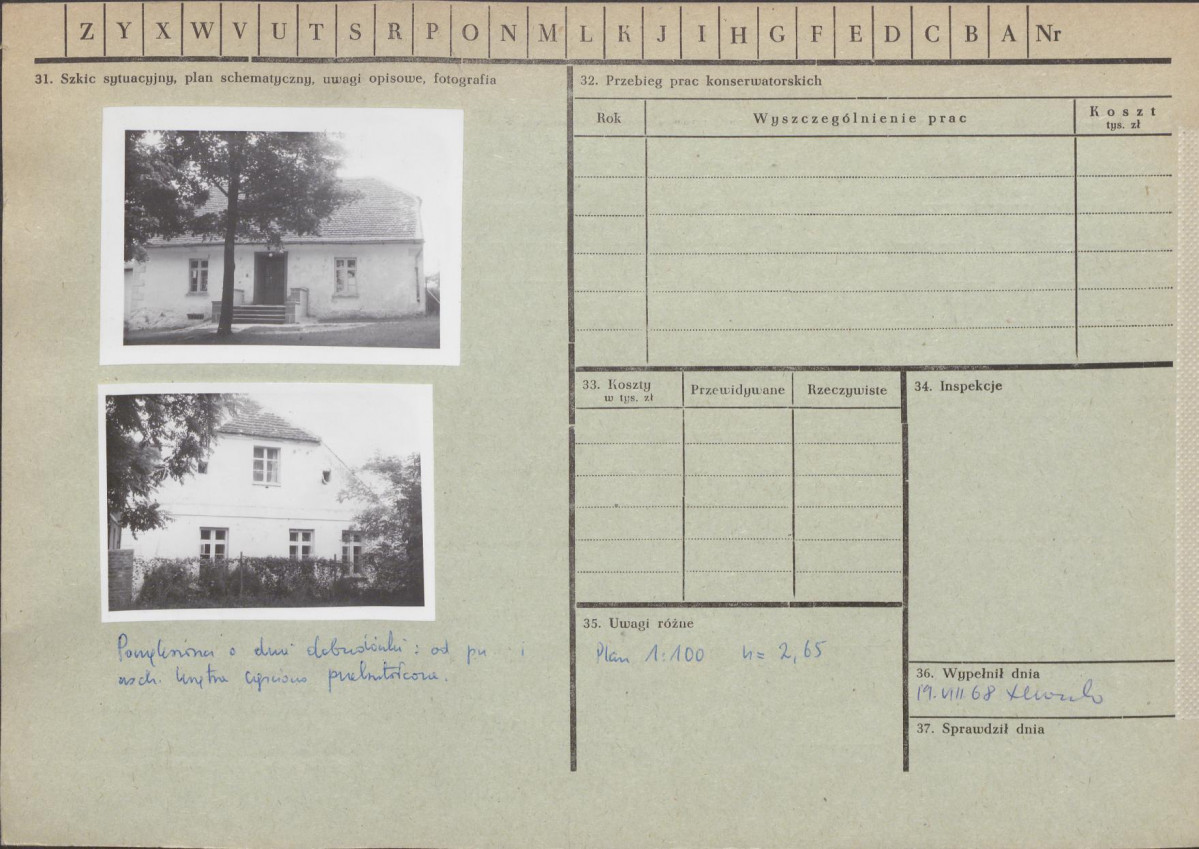 Z Y X W V U T S R P O N M L K J I H G F E D C B A Nr
31. Szkic sytuacyjny, plan schematyczny, uwagi opisowe, fotografia
o dwie dobudówki : od pn i
wsch. Wnętrza częściowo przekształcone.
32. Przebieg prac konserwatorskich
Rok
Wyszczególnienie prac
Koszt
tys. zł
33. Koszty
w tys. zł
Przewidywane
Rzeczywiste
34. Inspekcje
35. Uwagi różne
Plan 1:100 h= 2,65
36. Wypełnił dnia
19.VIII 68
37. Sprawdził dnia